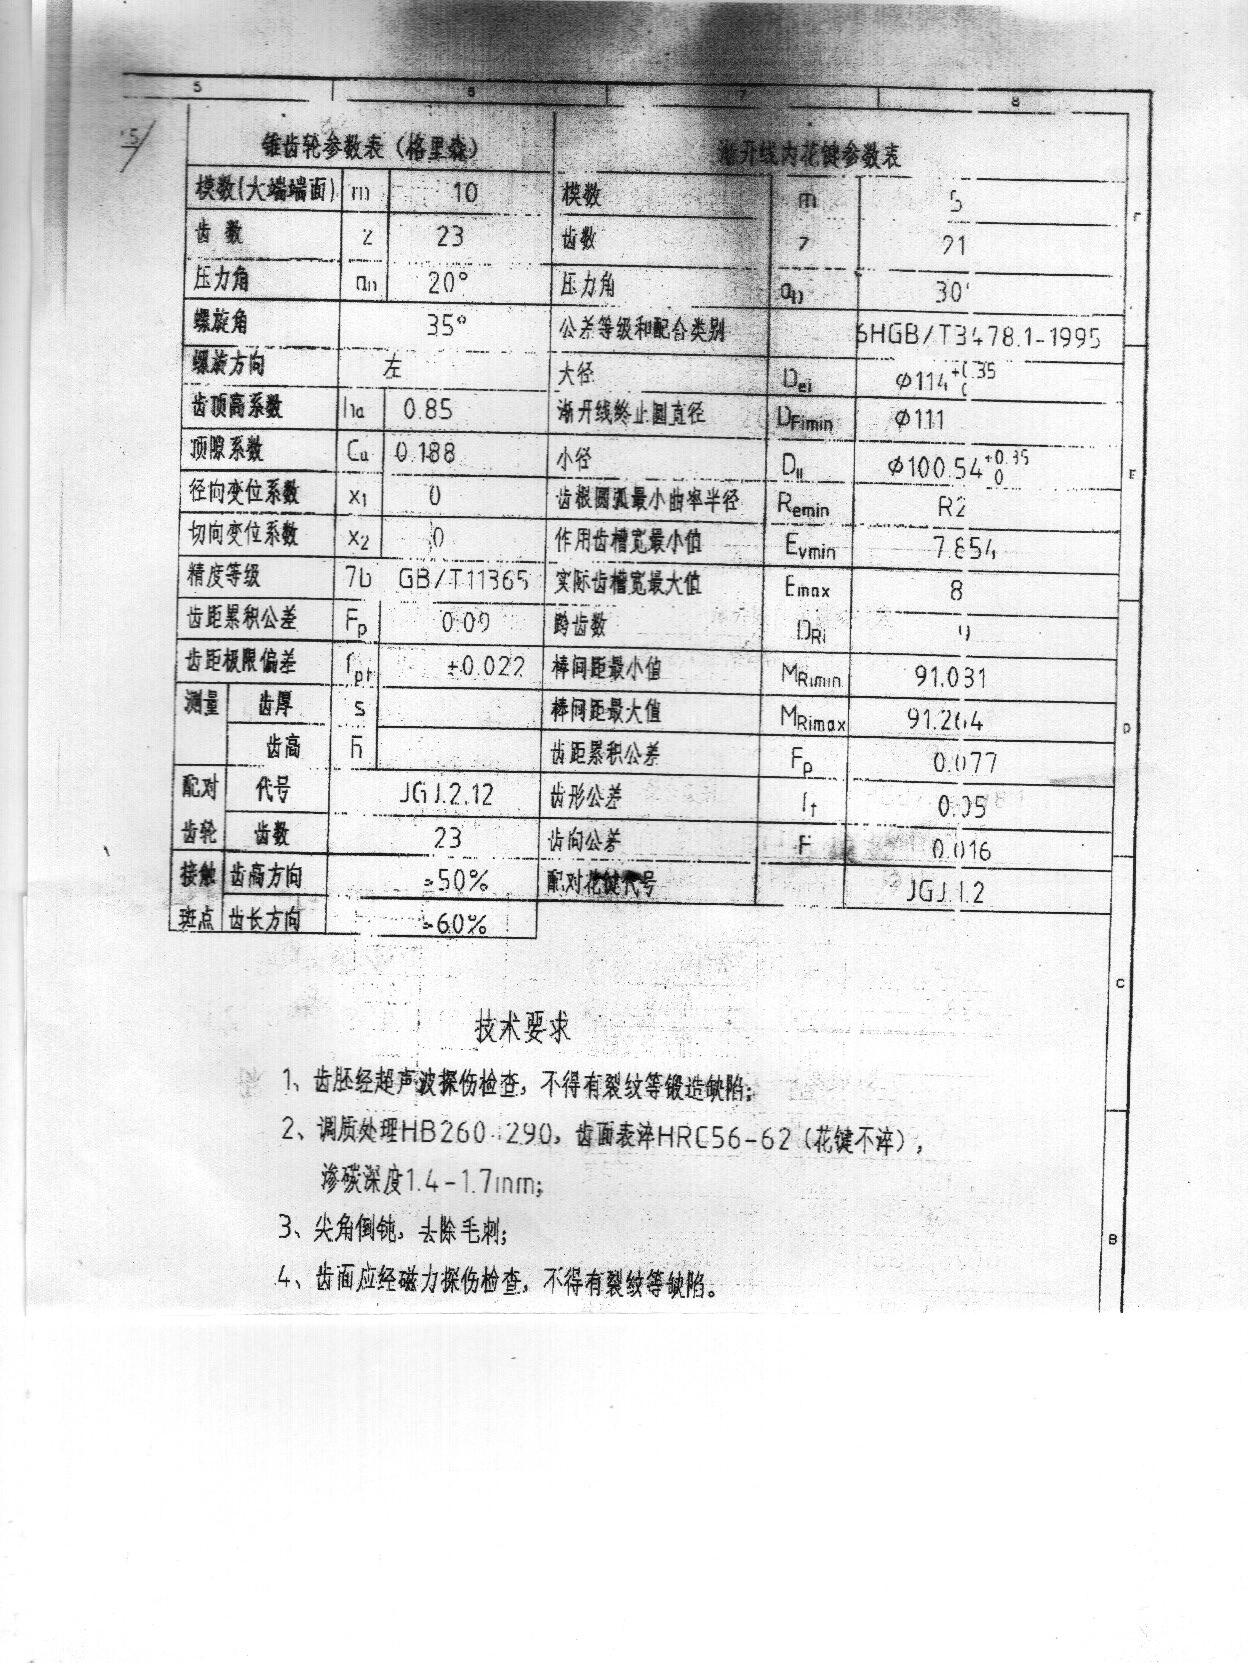 5 6 7 8
锥齿轮参数表（格里森）
模数(大端端面) m 10
齿数 z 23
压力角 αn 20°
螺旋角 35°
螺旋方向 左
齿顶高系数 ha 0.85
顶隙系数 Ca 0.188
径向变位系数 x1 0
切向变位系数 x2 0
精度等级 7b GB/T11365
齿距累积公差 Fp 0.09
齿距极限偏差 fpt ±0.022
测量 齿厚 s
齿高 h
配对 代号 JGJ.2.12
齿轮 齿数 23
接触 齿高方向 50%
斑点 齿长方向 60%
渐开线内花键参数表
模数 m 5
齿数 z 21
压力角 αD 30°
公差等级和配合类别 6HGB/T3478.1-1995
大径 Dei φ114 +0.35 0
渐开线终止圆直径 DFimin φ111
小径 Dii φ100.54 +0.35 0
齿根圆弧最小曲率半径 Remin R2
作用齿槽宽最小值 Evmin 7.854
实际齿槽宽最大值 Emax 8
跨齿数 DRi 9
棒间距最小值 MRimin 91.031
棒间距最大值 MRimax 91.264
齿距累积公差 Fp 0.077
齿形公差 0.05
齿向公差 F 0.016
配对花键代号 JGJ.1.2
F
E
D
C
B
技术要求
1、齿胚经超声波探伤检查，不得有裂纹等锻造缺陷；
2、调质处理HB260-290，齿面表淬HRC56-62（花键不淬），
渗碳深度1.4-1.7mm；
3、尖角倒钝，去除毛刺；
4、齿面应经磁力探伤检查，不得有裂纹等缺陷。